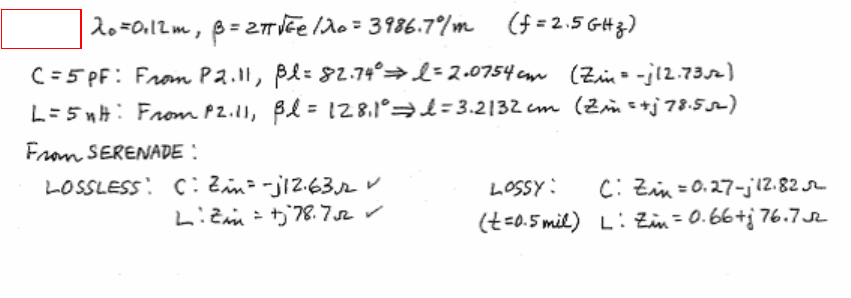 λ₀=0.12m, β = 2π√εe /λ₀ = 3986.7°/m (f = 2.5 GHz)
C = 5 pF: From P2.11, βl = 82.74° ⇒ l = 2.0754 cm (Zin = -j12.73Ω)
L = 5 nH: From P2.11, βl = 128.1° ⇒ l = 3.2132 cm (Zin = +j 78.5Ω)
From SERENADE:
LOSSLESS: C: Zin = -j12.63Ω ✓ LOSSY: C: Zin = 0.27-j12.82Ω
L: Zin = +j78.7Ω ✓ (t=0.5 mil) L: Zin = 0.66+j 76.7Ω